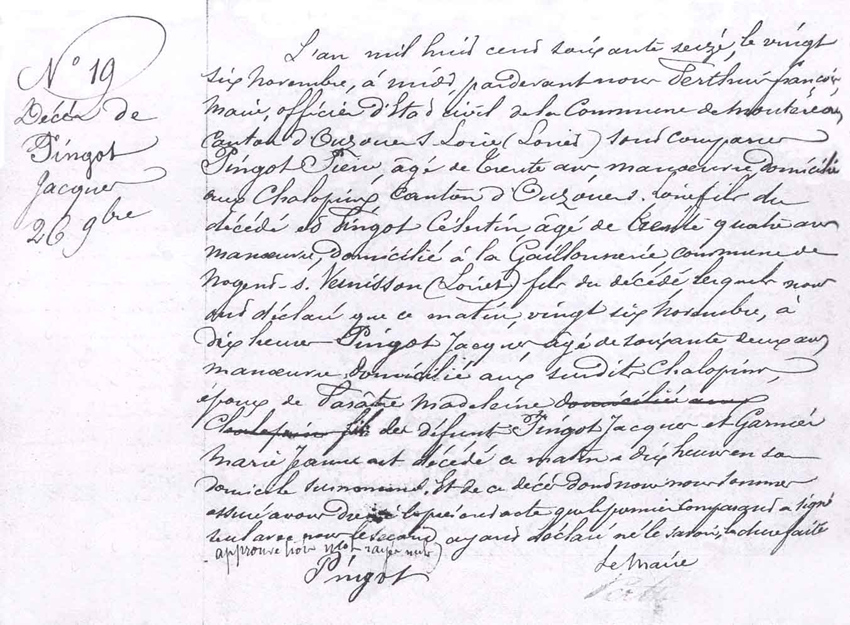 N° 19
Décès de
Pingot
Jacques
26 9bre
L'an mil huit cent soixante seize, le vingt
six Novembre, à midi, pardevant nous Perthuis françois
Maire, officier d'Etat civil de la Commune de Montereau
Canton d'Ouzouer S. Loire (Loiret) sont comparus
Pingot Pierre, âgé de trente ans, manœuvre, domicilié
aux Chalopins, Canton d'Ouzouer s. Loire fils du
décédé et Pingot Célestin, âgé de trente quatre ans
manœuvre, domicilié à la Gaillonnerie, commune de
Nogent-s. Vernisson (Loiret) fils du décédé lesquels nous
ont déclaré que ce matin, vingt six Novembre, à
dix heures Pingot Jacques âgé de soixante deux ans
manœuvre, domicilié aux susdits Chalopins,
époux de Madeleine domicilié aux
fils des défunts Pingot Jacques et Garnier
Marie Jeanne est décédé ce matin à dix heures en son
domicile surnommé. Et de ce décès dont nous nous sommes
assuré avons dressé le présent acte que le premier comparant a signé
seul avec nous le second ayant déclaré ne le savoir, lecture faite
approuvé trois mots rayés nuls
Pingot
Le Maire